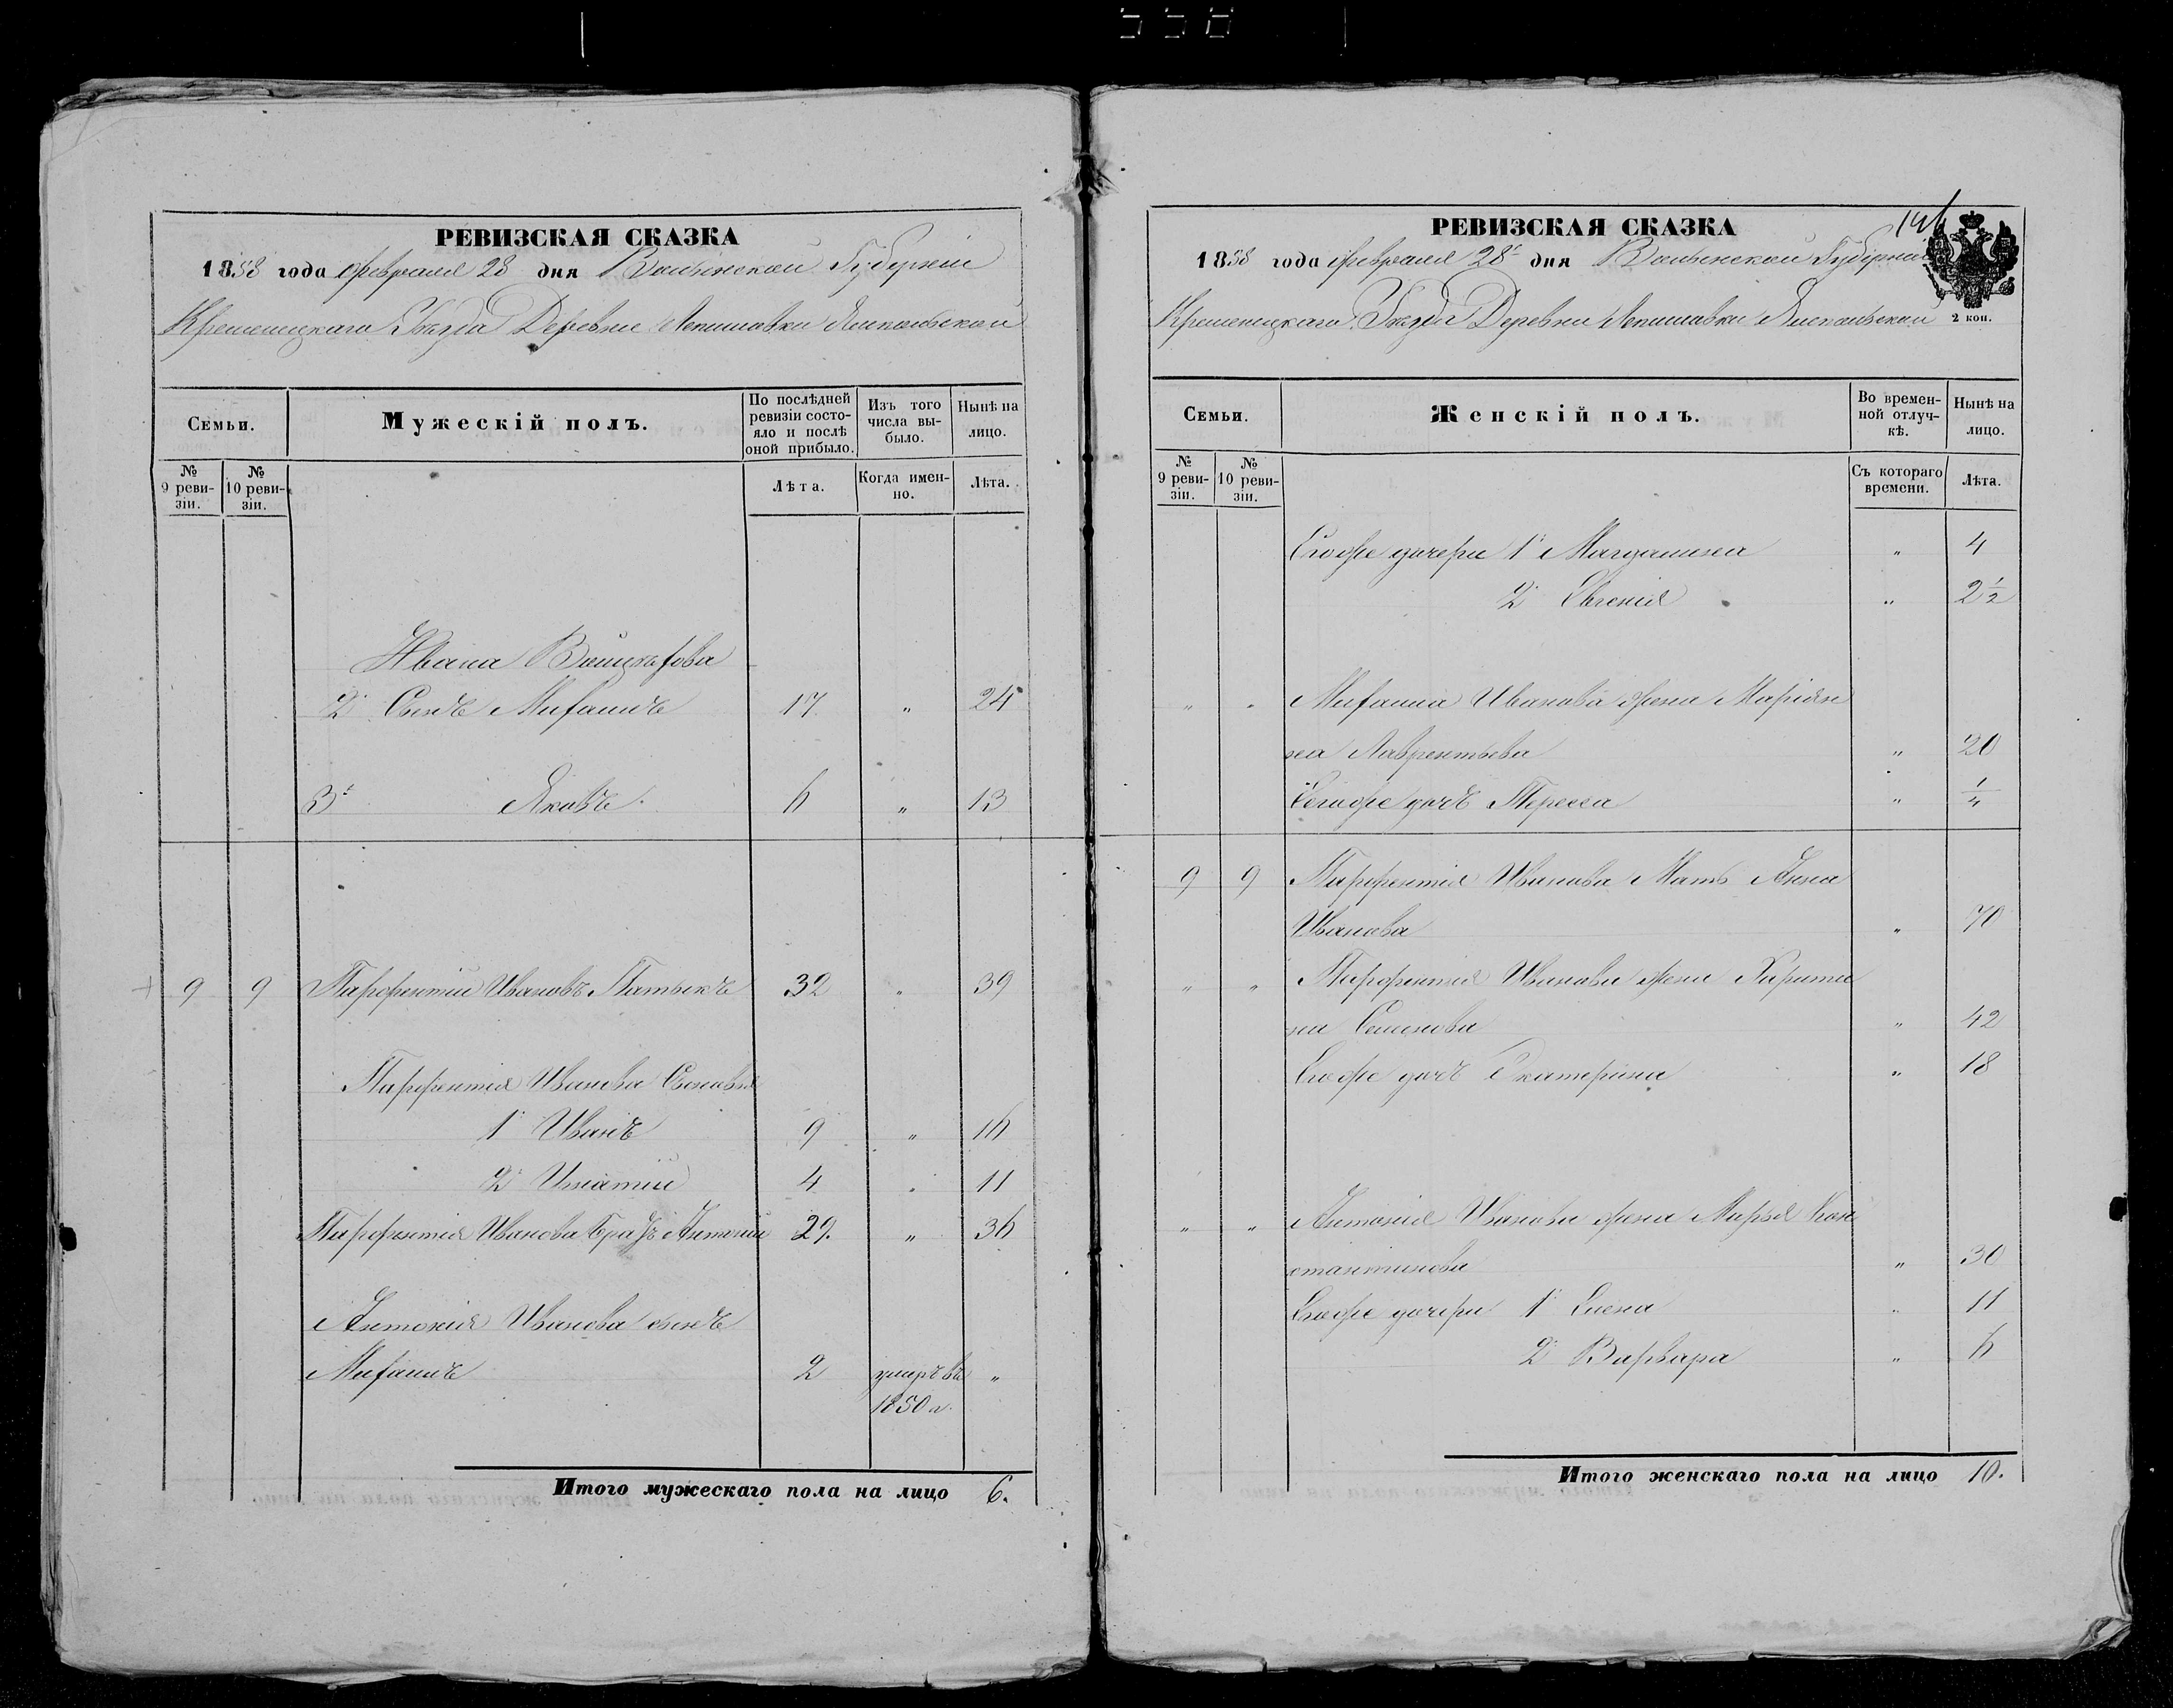 558
РЕВИЗСКАЯ СКАЗКА
1858 года Февраля 28 дня Волынской Губерніи
Кременецкаго Уѣзда Деревни Лепишовки Ямпольской
Семьи.
Мужескій полъ.
По послѣдней ревизіи состояло и послѣ оной прибыло.
Изъ того числа выбыло.
Нынѣ на лицо.
№ 9 ревизіи.
№ 10 ревизіи.
Лѣта.
Когда именно.
Лѣта.
Ивана
2й Сынъ Михаилъ 17 " 24
3й Яковъ 6 " 13
9 9 Парфентій Ивановъ 32 " 39
Парфентія Иванова Сыновья
1й Иванъ 9 " 16
2й Игнатій 4 " 11
Парфентія Иванова братъ Антоній 29. " 36
Антонія Иванова сынъ
Михаилъ 2 умеръ въ "
1850 г.
Итого мужескаго пола на лицо 6.
РЕВИЗСКАЯ СКАЗКА
1858 года Февраля 28 дня Волынской Губерніи
Кременецкаго Уѣзда Деревни Лепишовки Ямпольской
2 коп.
Семьи.
Женскій полъ.
Во временной отлучкѣ.
Нынѣ на лицо.
№ 9 ревизіи.
№ 10 ревизіи.
Съ котораго времени.
Лѣта.
Егоже дочери 1 Магдалина " 4
2 Евгенія " 2 1/2
" " Михаила Иванова жена Маріян
на Лаврентьева " 20
Егоже дочь Тереса " 1/4
9 9 Парфентія Иванова Мать Анна
Иванова " 70
" " Парфентія Иванова жена Харити
на Семенова " 42
Егоже дочь Екатерина " 18
" " Антонія Иванова жена Марья Кон
стантинова " 30
Егоже дочери 1 Елена " 11
2 Варвара " 6
Итого женскаго пола на лицо 10.